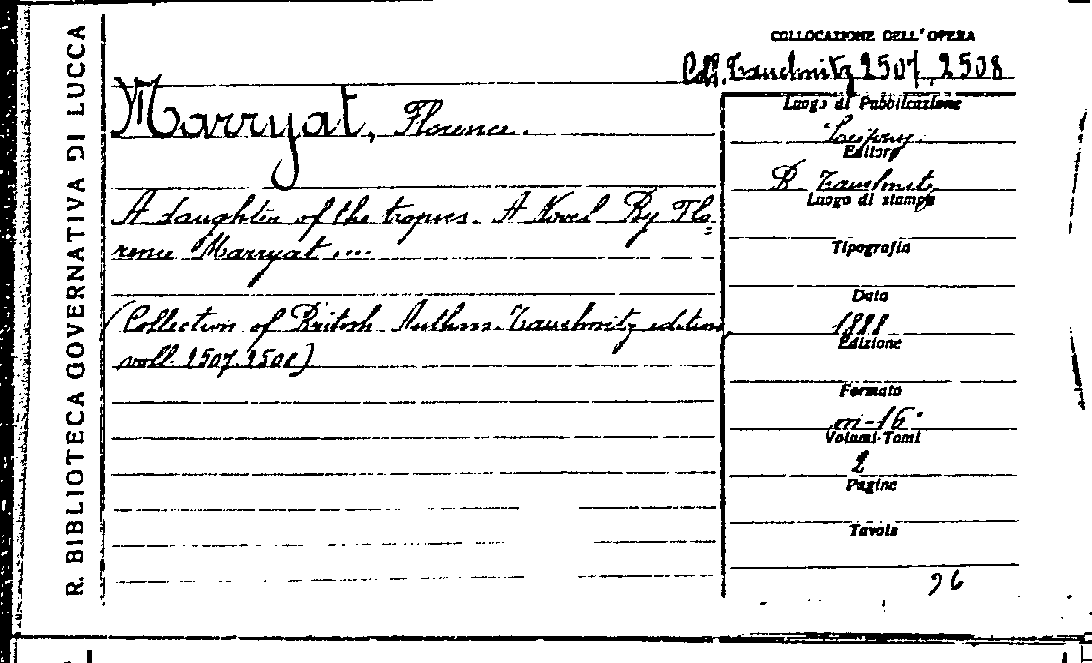 R. BIBLIOTECA GOVERNATIVA DI LUCCA
COLLOCAZIONE DELL'OPERA
Coll. Tauchnitz 2507, 2508
Marryat, Florence.
A daughter of the tropics. A Novel By Flo=
rence Marryat ....
(Collection of British Authors. Tauchnitz edition
voll. 2507. 2508)
Luogo di Pubblicazione
Leipzig.
Editore
B. Tauchnitz
Luogo di stampa
Tipografia
Data
1888
Edizione
Formato
in-16°
Volumi-Tomi
2
Pagine
Tavole
96